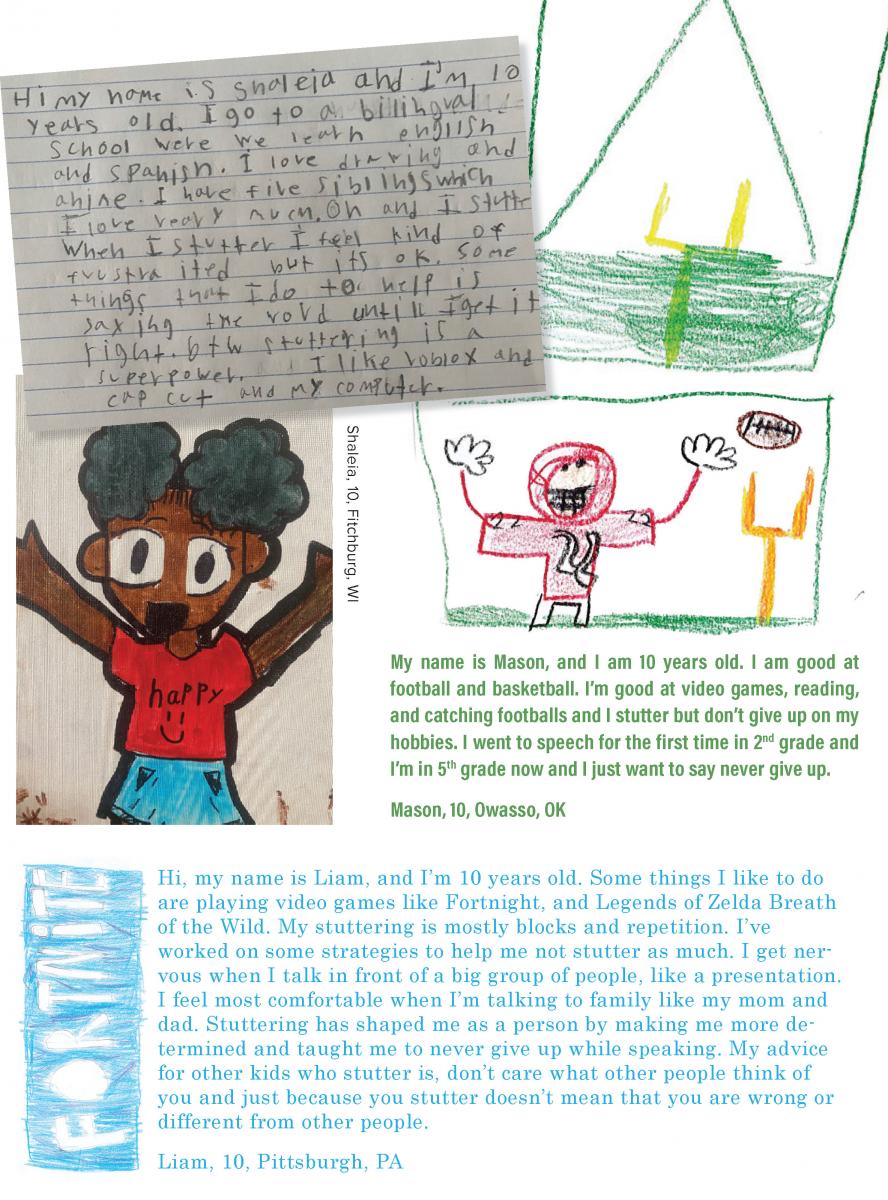 Hi my name is Shaleia and I'm 10
years old. I go to a bilingual
School were we learn english
and spanish. I love drawing and
anime. I have five siblings which
I love veary much. Oh and I stutter
When I stutter I feel kind of
frustra ited but its ok. Some
things that I do to help is
saxing the word untill I get it
right. btw stuttering is a
superpower. I like roblox and
cap cut and my computer.
Shaleia, 10, Fitchburg, WI
happy
22
22
22
My name is Mason, and I am 10 years old. I am good at
football and basketball. I'm good at video games, reading,
and catching footballs and I stutter but don't give up on my
hobbies. I went to speech for the first time in 2nd grade and
I'm in 5th grade now and I just want to say never give up.
Mason, 10, Owasso, OK
FORTNiTE
Hi, my name is Liam, and I'm 10 years old. Some things I like to do
are playing video games like Fortnight, and Legends of Zelda Breath
of the Wild. My stuttering is mostly blocks and repetition. I've
worked on some strategies to help me not stutter as much. I get ner-
vous when I talk in front of a big group of people, like a presentation.
I feel most comfortable when I'm talking to family like my mom and
dad. Stuttering has shaped me as a person by making me more de-
termined and taught me to never give up while speaking. My advice
for other kids who stutter is, don't care what other people think of
you and just because you stutter doesn't mean that you are wrong or
different from other people.
Liam, 10, Pittsburgh, PA